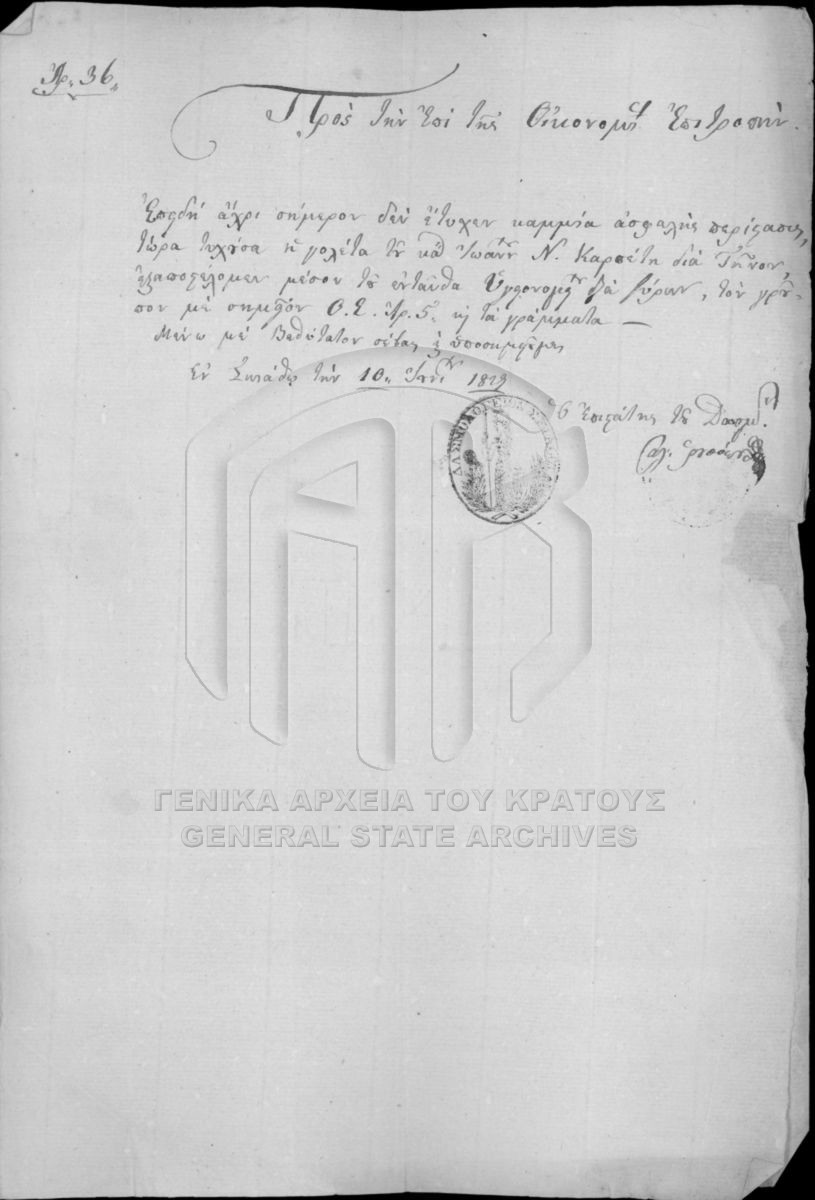 Ἀρ. 36.
Πρὸς τὴν ἐπὶ τῆς Οἰκονομ. Ἐπιτροπήν.
Ἐπειδὴ ἄχρι σήμερον δὲν ἔτυχεν καμμία ἀσφαλὴς περίστασις,
τώρα τυχοῦσα ἡ γολέτα τοῦ Ἰωάνν. Ν. Καρπέτη διὰ Τῆνον,
ἐξαποστέλομεν μέσον τοῦ ἐνταῦθα τὸν γρῦ-
πον μὲ Ο. Σ. Ἀρ. 5. καὶ τὰ γράμματα —
Μένω μὲ βαθύτατον σέβας
Ἐν Σκιάθῳ τὴν 10. 1829
Ὁ ἐπιστάτης τοῦ Δασμ.
ΓΕΝΙΚΑ ΑΡΧΕΙΑ ΤΟΥ ΚΡΑΤΟΥΣ
GENERAL STATE ARCHIVES